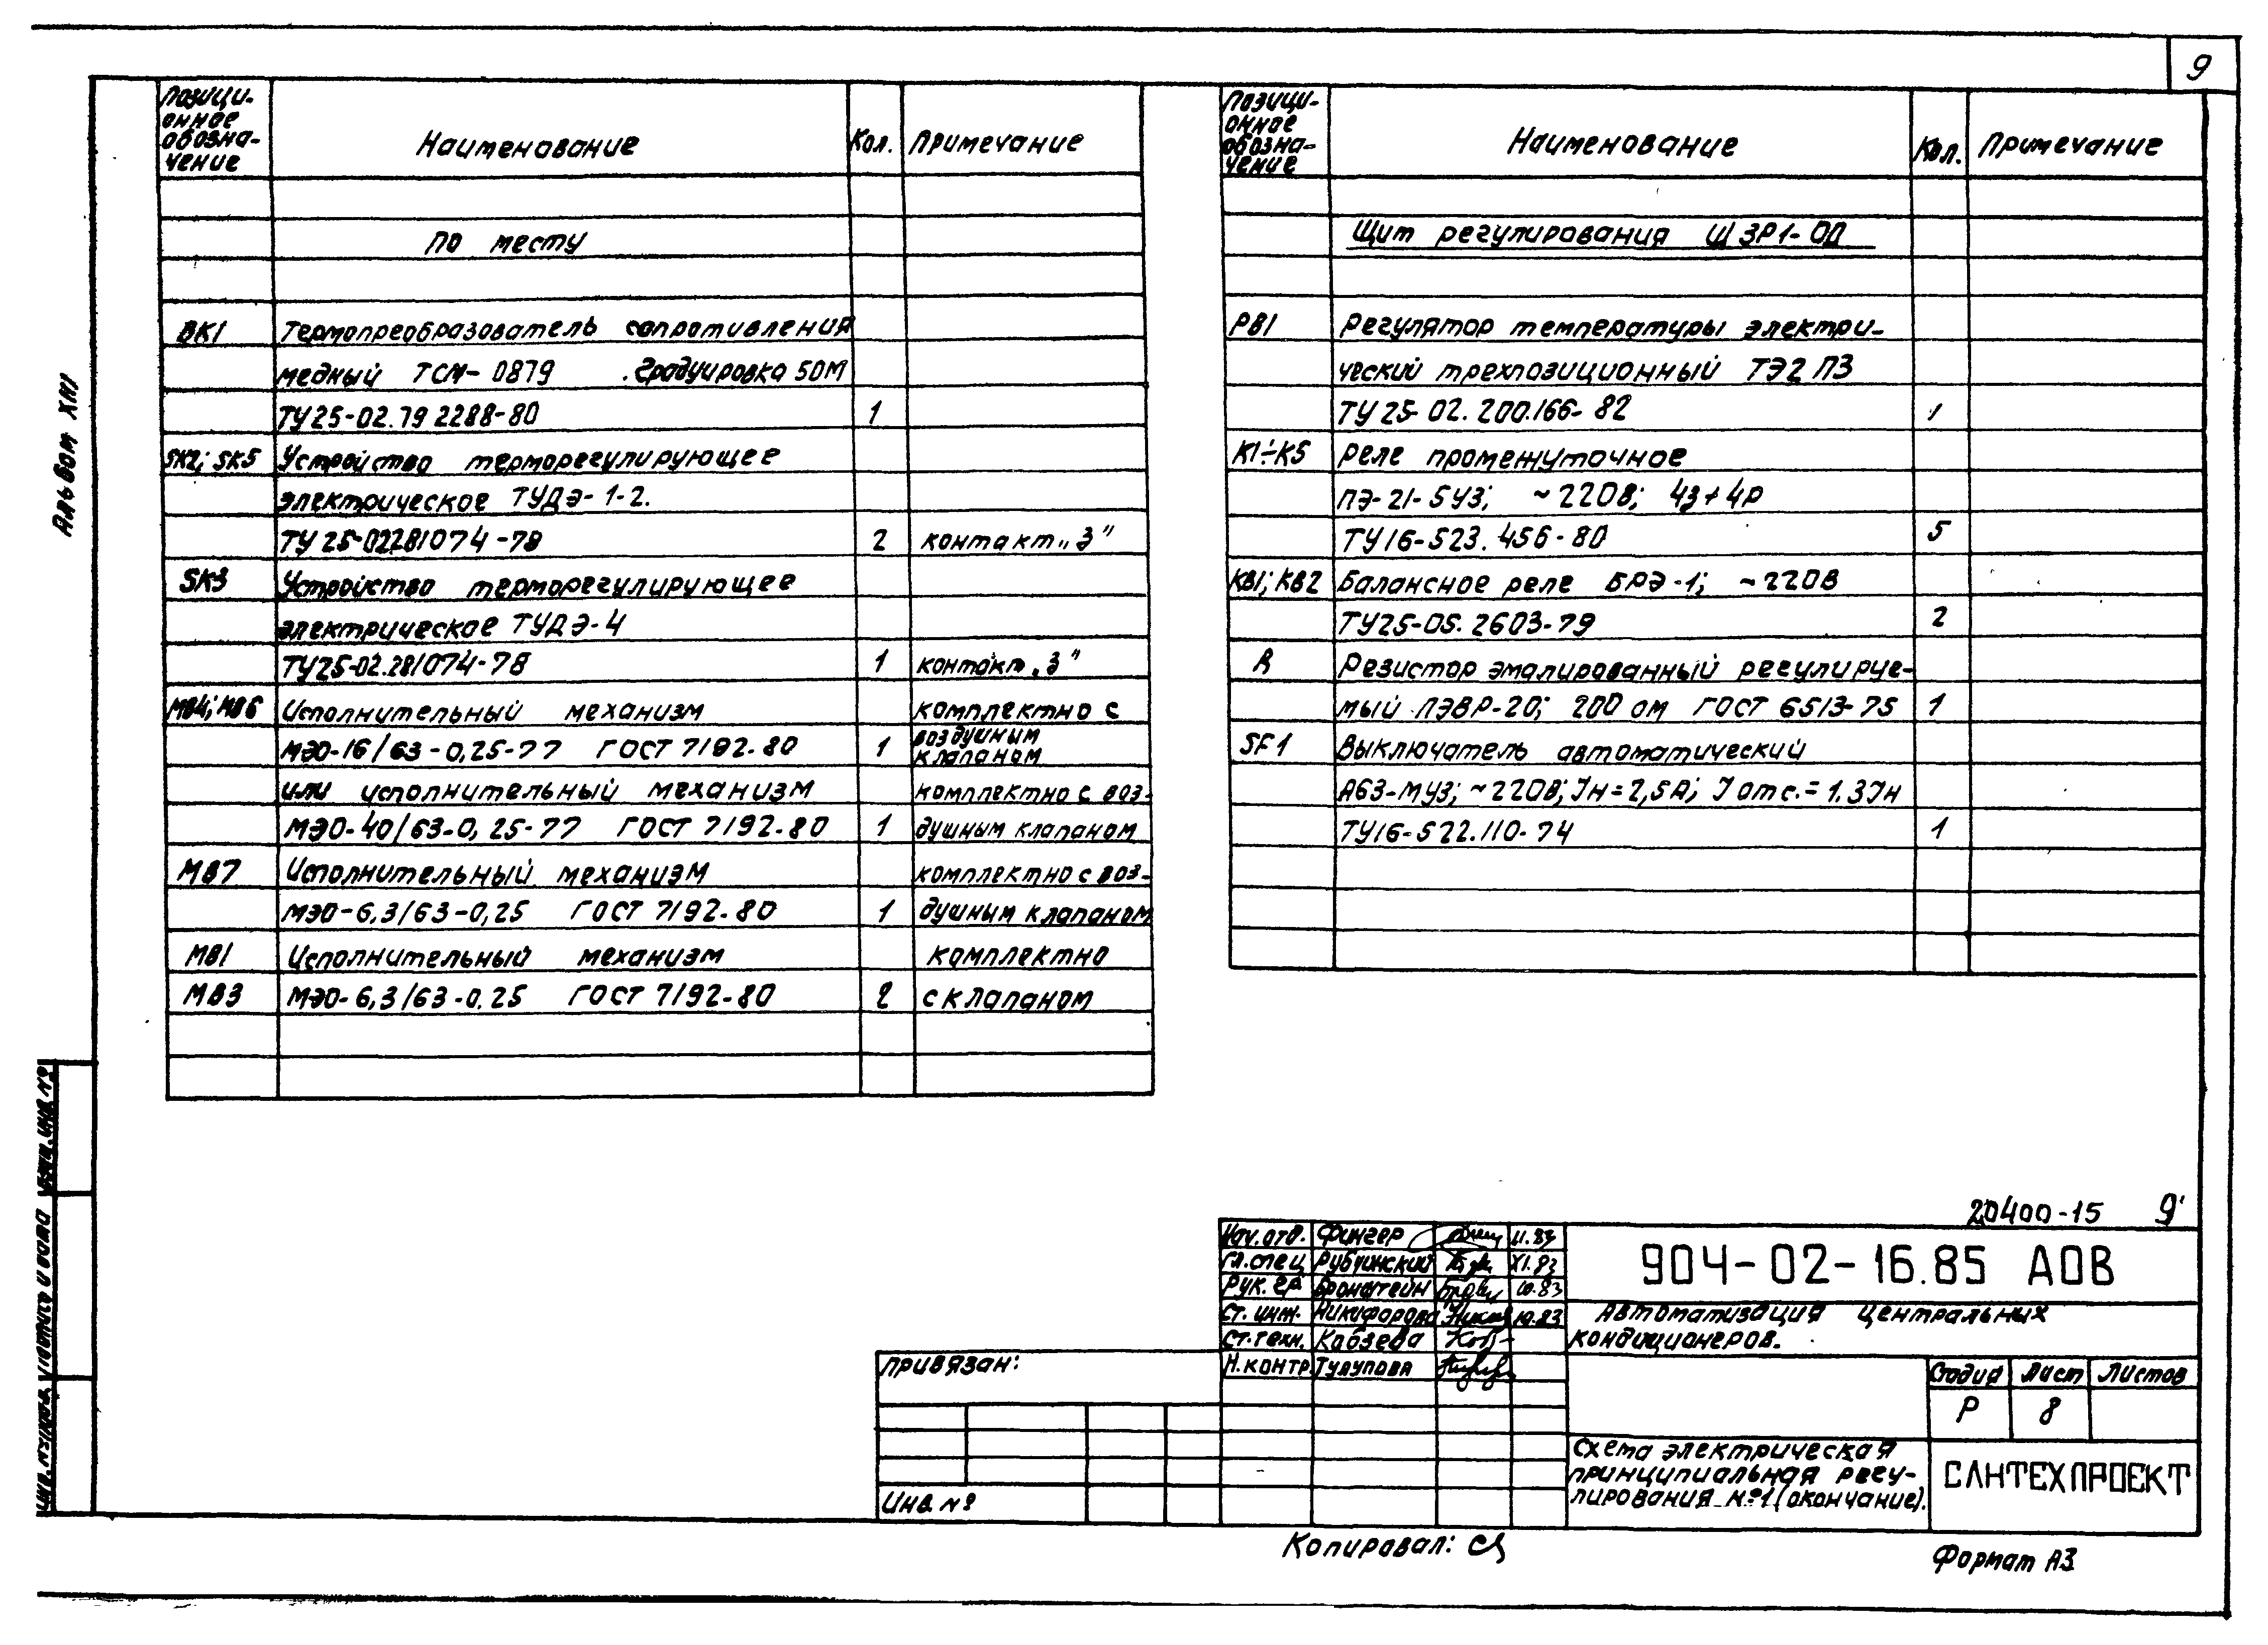 9
Альбом XIII
Позици-
онное
обозна-
чение
Наименование
Кол.
Примечание
По месту
ВК1 Термопреобразователь сопротивления
медный ТСМ-0879 градуировка 50М
ТУ25-02.79 2288-80 1
SK2; SK5 Устройство терморегулирующее
электрическое ТУДЭ-1-2.
ТУ 25-02281074-78 2 контакт „З"
SK3 Устройство терморегулирующее
электрическое ТУДЭ-4
ТУ25-02.281074-78 1 контакт „З"
МВ4; МВ6 Исполнительный механизм комплектно с
МЭО-16/63-0,25-77 ГОСТ 7192-80 1 воздушным
клапаном
или исполнительный механизм комплектно с воз-
МЭО-40/63-0,25-77 ГОСТ 7192-80 1 душным клапаном
МВ7 Исполнительный механизм комплектно с воз-
МЭО-6,3/63-0,25 ГОСТ 7192-80 1 душным клапаном
МВ1 Исполнительный механизм комплектно
МВ3 МЭО-6,3/63-0.25 ГОСТ 7192-80 2 с клапаном
Позици-
онное
обозна-
чение
Наименование
Кол.
Примечание
Щит регулирования Щ ЗР1-ОП
РВ1 Регулятор температуры электри-
ческий трехпозиционный ТЭ2 П3
ТУ 25-02.200.166-82 1
К1÷К5 Реле промежуточное
ПЭ-21-5У3; ~220В; 4з+4р
ТУ16-523.456-80 5
КВ1; КВ2 Балансное реле БРЭ-1; ~220В
ТУ25-05.2603-79 2
R Резистор эмалированный регулируе-
мый ПЭВР-20; 200 ом ГОСТ 6513-75 1
SF1 Выключатель автоматический
А63-МУ3; ~220В; Iн=2,5А; I отс.=1.3Iн
ТУ16-522.110-74 1
20400-15 9
Нач. отд. Фингер 11.83
Гл. спец Рубчинский XI.83
Рук. гр Бронштейн 10.83
Ст. инж. Никифорова 10.83
Ст. техн. Кобзева
Н. контр. Тулупова
904-02-16.85 АОВ
Автоматизация центральных
кондиционеров.
Стадия Лист Листов
Р 8
Схема электрическая
принципиальная регу-
лирования №1 (окончание).
САНТЕХПРОЕКТ
Привязан:
Инв. №
Инв. № подл. Подпись и дата Взам. инв. №
Копировал:
Формат А3